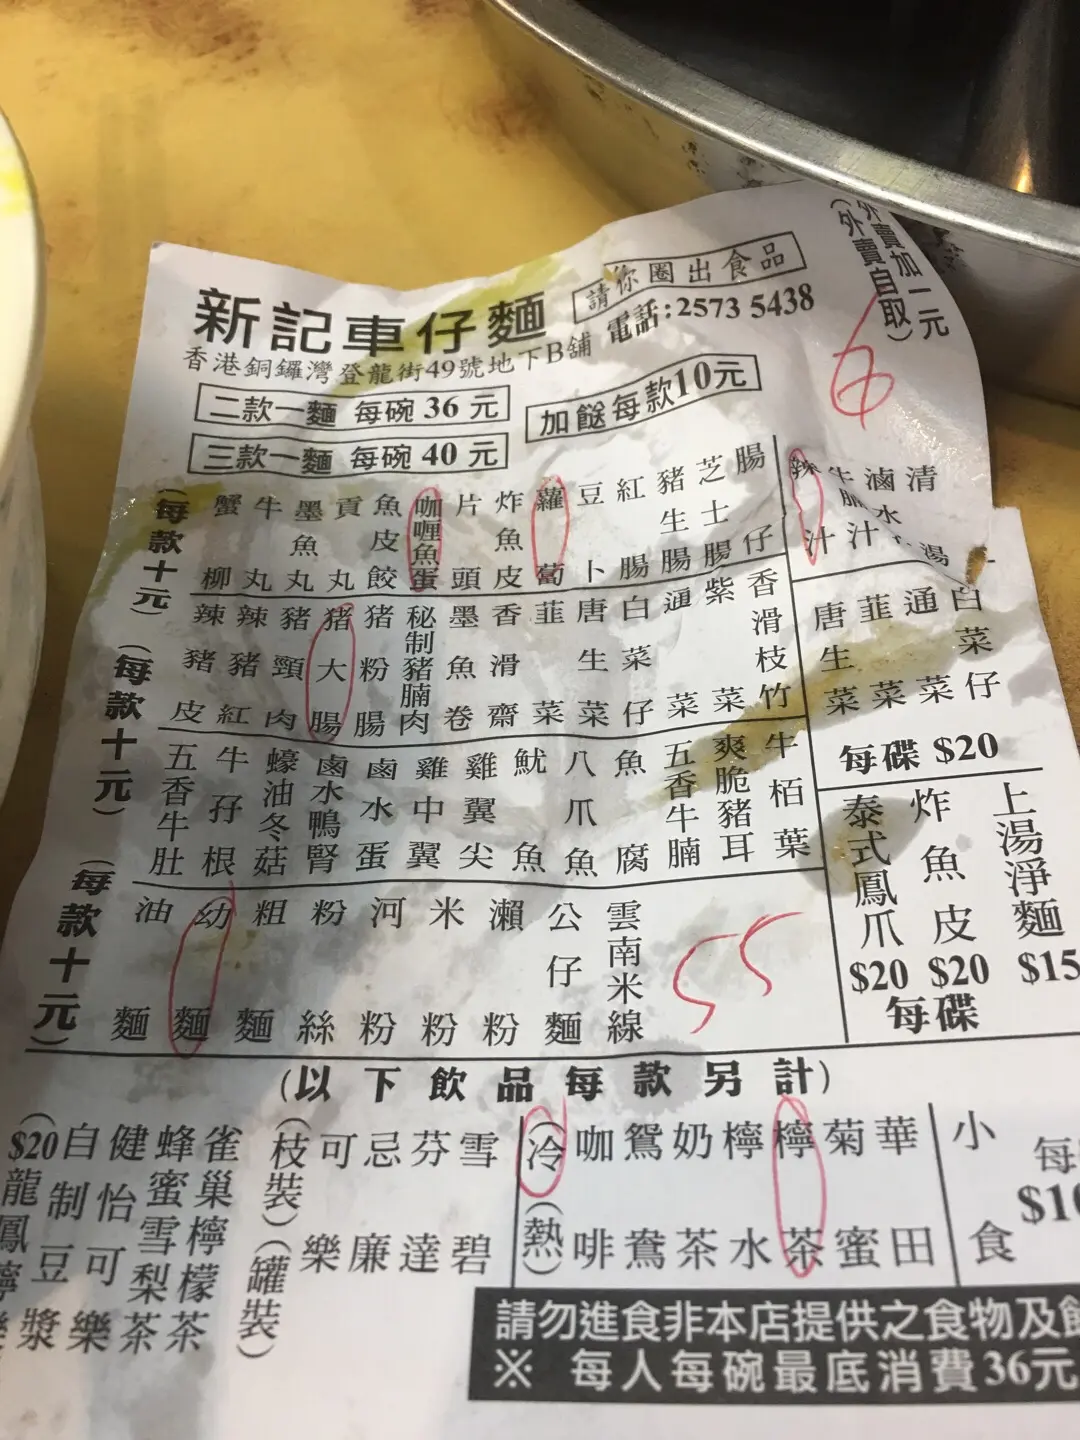 (外賣加一元
(外賣自取)
6
請你圈出食品
新記車仔麵
電話:2573 5438
香港銅鑼灣登龍街49號地下B舖
二款一麵 每碗 36 元
加餸每款10元
三款一麵 每碗 40 元
(每款十元)
蟹柳
牛丸
墨魚丸
貢丸
魚皮餃
咖喱魚蛋
片頭
炸魚皮
蘿蔔
豆卜
紅腸
豬生腸
芝士腸
腸仔
辣汁
牛腩汁
滷水汁
清湯
(每款十元)
辣豬皮
辣豬紅
豬頸肉
豬大腸
豬粉腸
秘制豬腩肉
墨魚卷
香滑齋
韮菜
唐生菜
白菜仔
通菜
紫菜
香滑枝竹
唐生菜
韮菜
通菜
白菜仔
每碟 $20
(每款十元)
五香牛肚
牛孖根
蠔油冬菇
鹵水鴨腎
鹵水蛋
雞中翼
雞翼尖
魷魚
八爪魚
魚腐
五香牛腩
爽脆豬耳
牛栢葉
泰式鳳爪 $20
炸魚皮 $20
上湯淨麵 $15
每碟
油麵
幼麵
粗麵
粉絲
河粉
米粉
瀨粉
公仔麵
雲南米線
55
(以下飲品每款另計)
$20
自制豆漿
健怡可樂
蜂蜜雪梨茶
雀巢檸檬茶
(枝裝)(罐裝)
可樂
忌廉
芬達
雪碧
(冷)(熱)
咖啡
鴛鴦
奶茶
檸水
檸茶
菊蜜
華田
小食
每
請勿進食非本店提供之食物及
※ 每人每碗最底消費36元